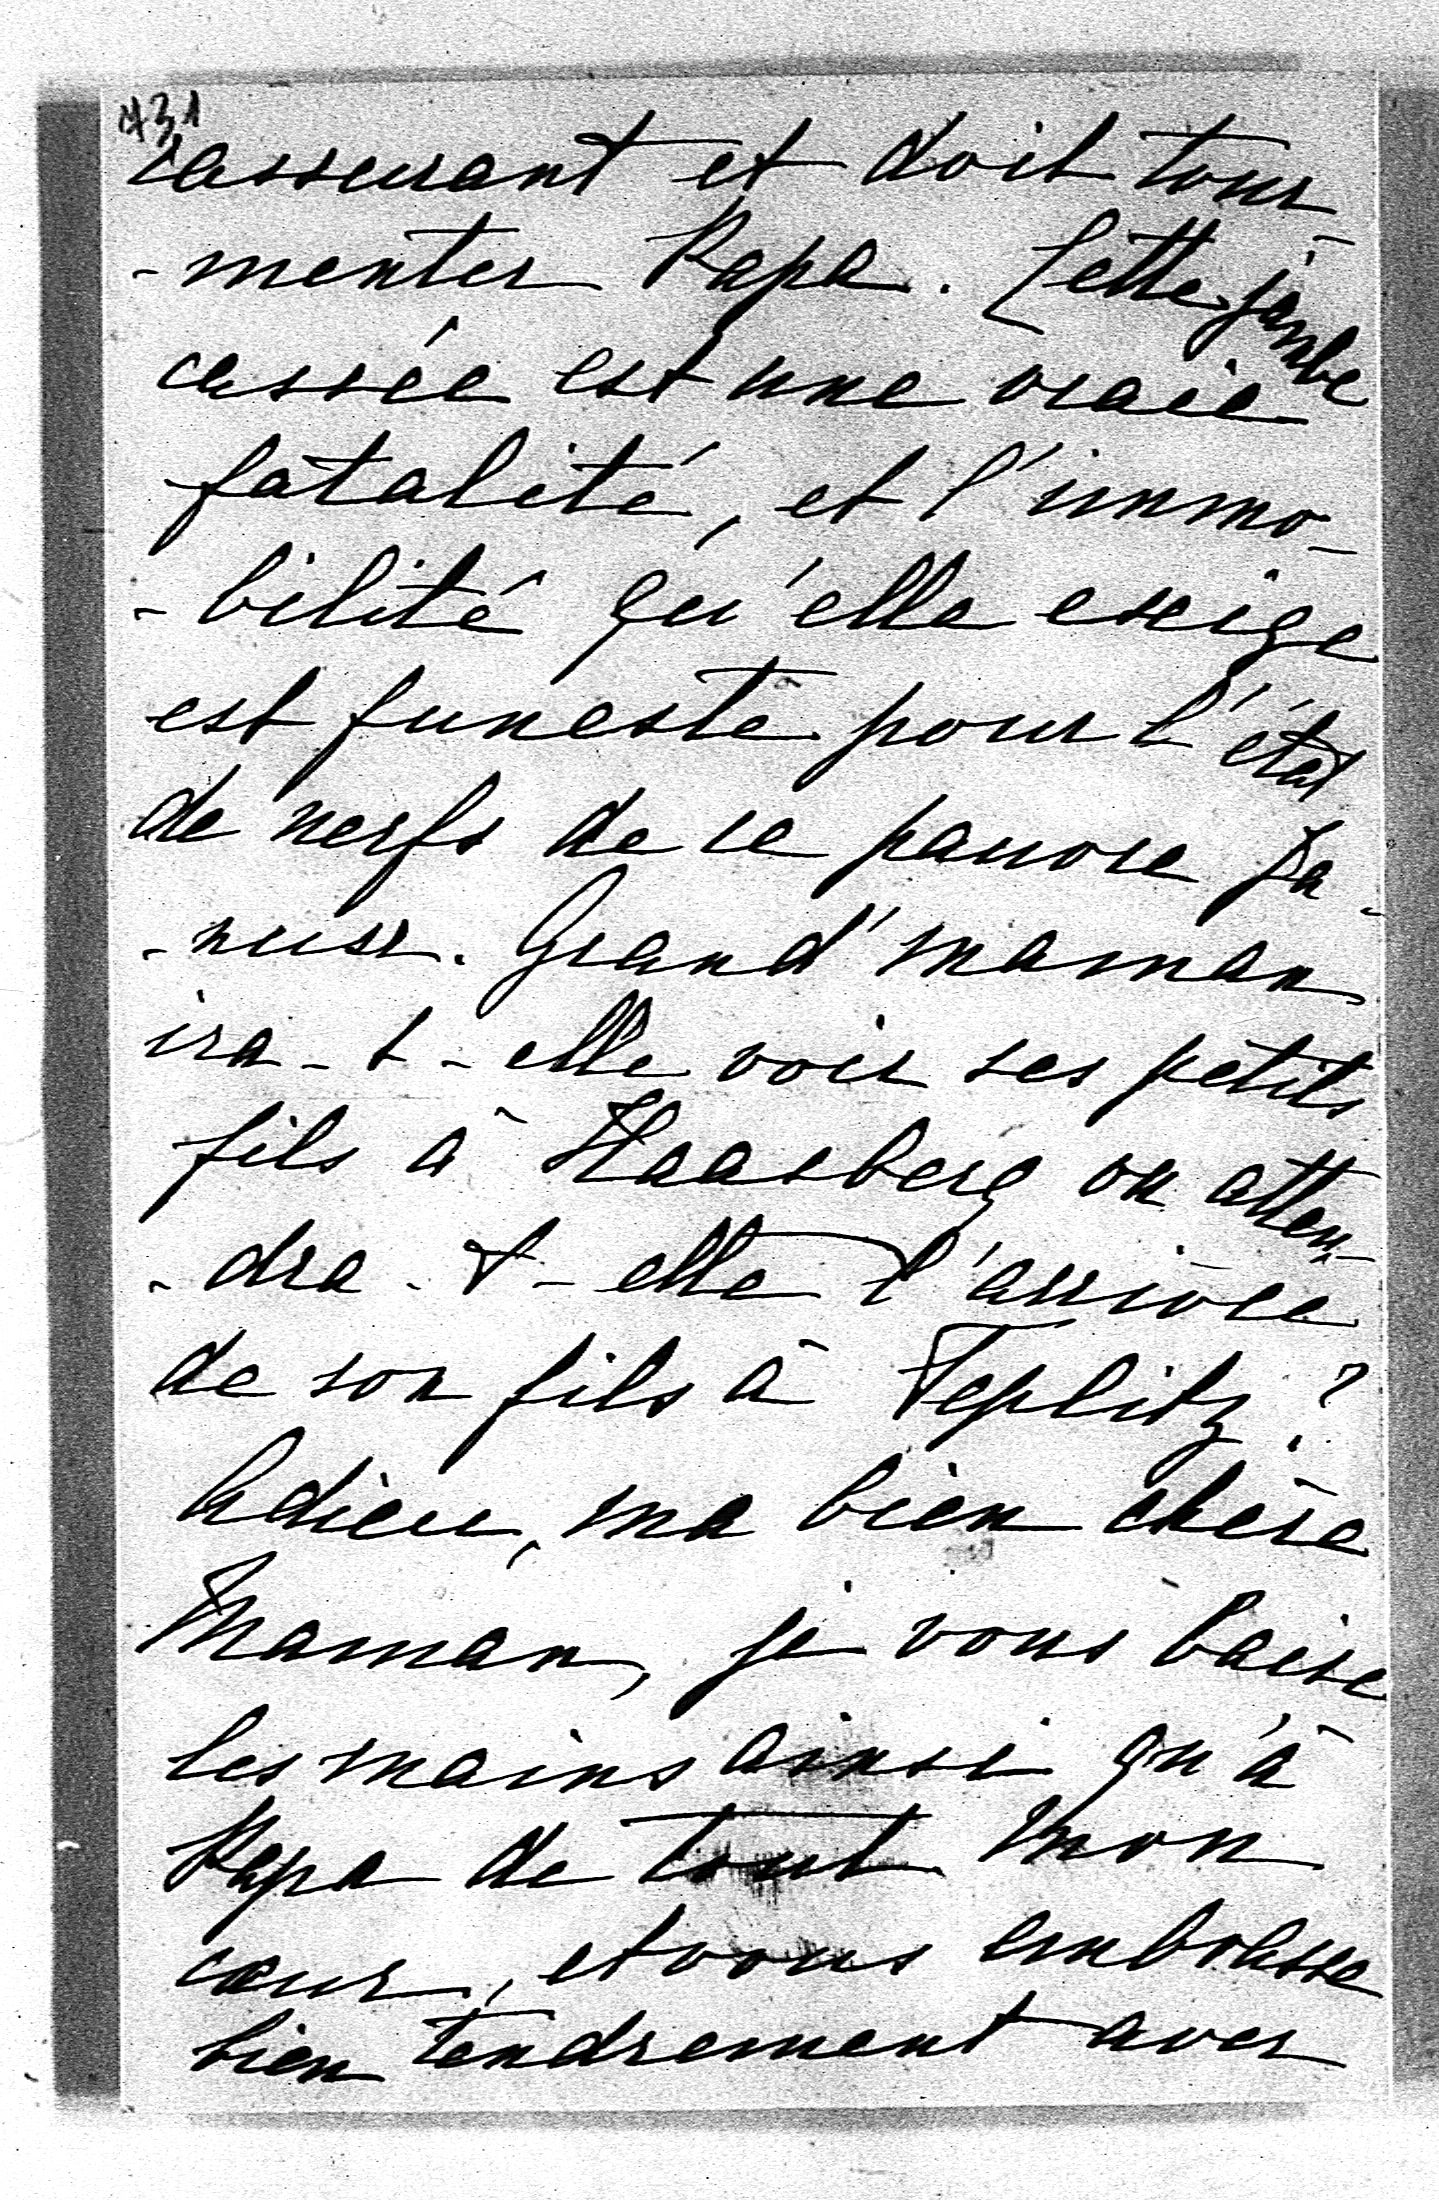 431
rassurant et doit tour-
-menter Papa. Cette jambe
cassée est une vraie
fatalité, et l'immo-
-bilité qu'elle exige
est funeste pour l'état
de nerfs de ce pauvre Ja-
-nusz. Grand'maman
ira-t-elle voir ses petits
fils à Haasberg ou atten-
-dra-t-elle l'arrivée
de son fils à Teplitz?
Adieu, ma bien chère
Maman, je vous baise
les mains ainsi qu'à
Papa de tout mon
cœur, et vous embrasse
bien tendrement avec